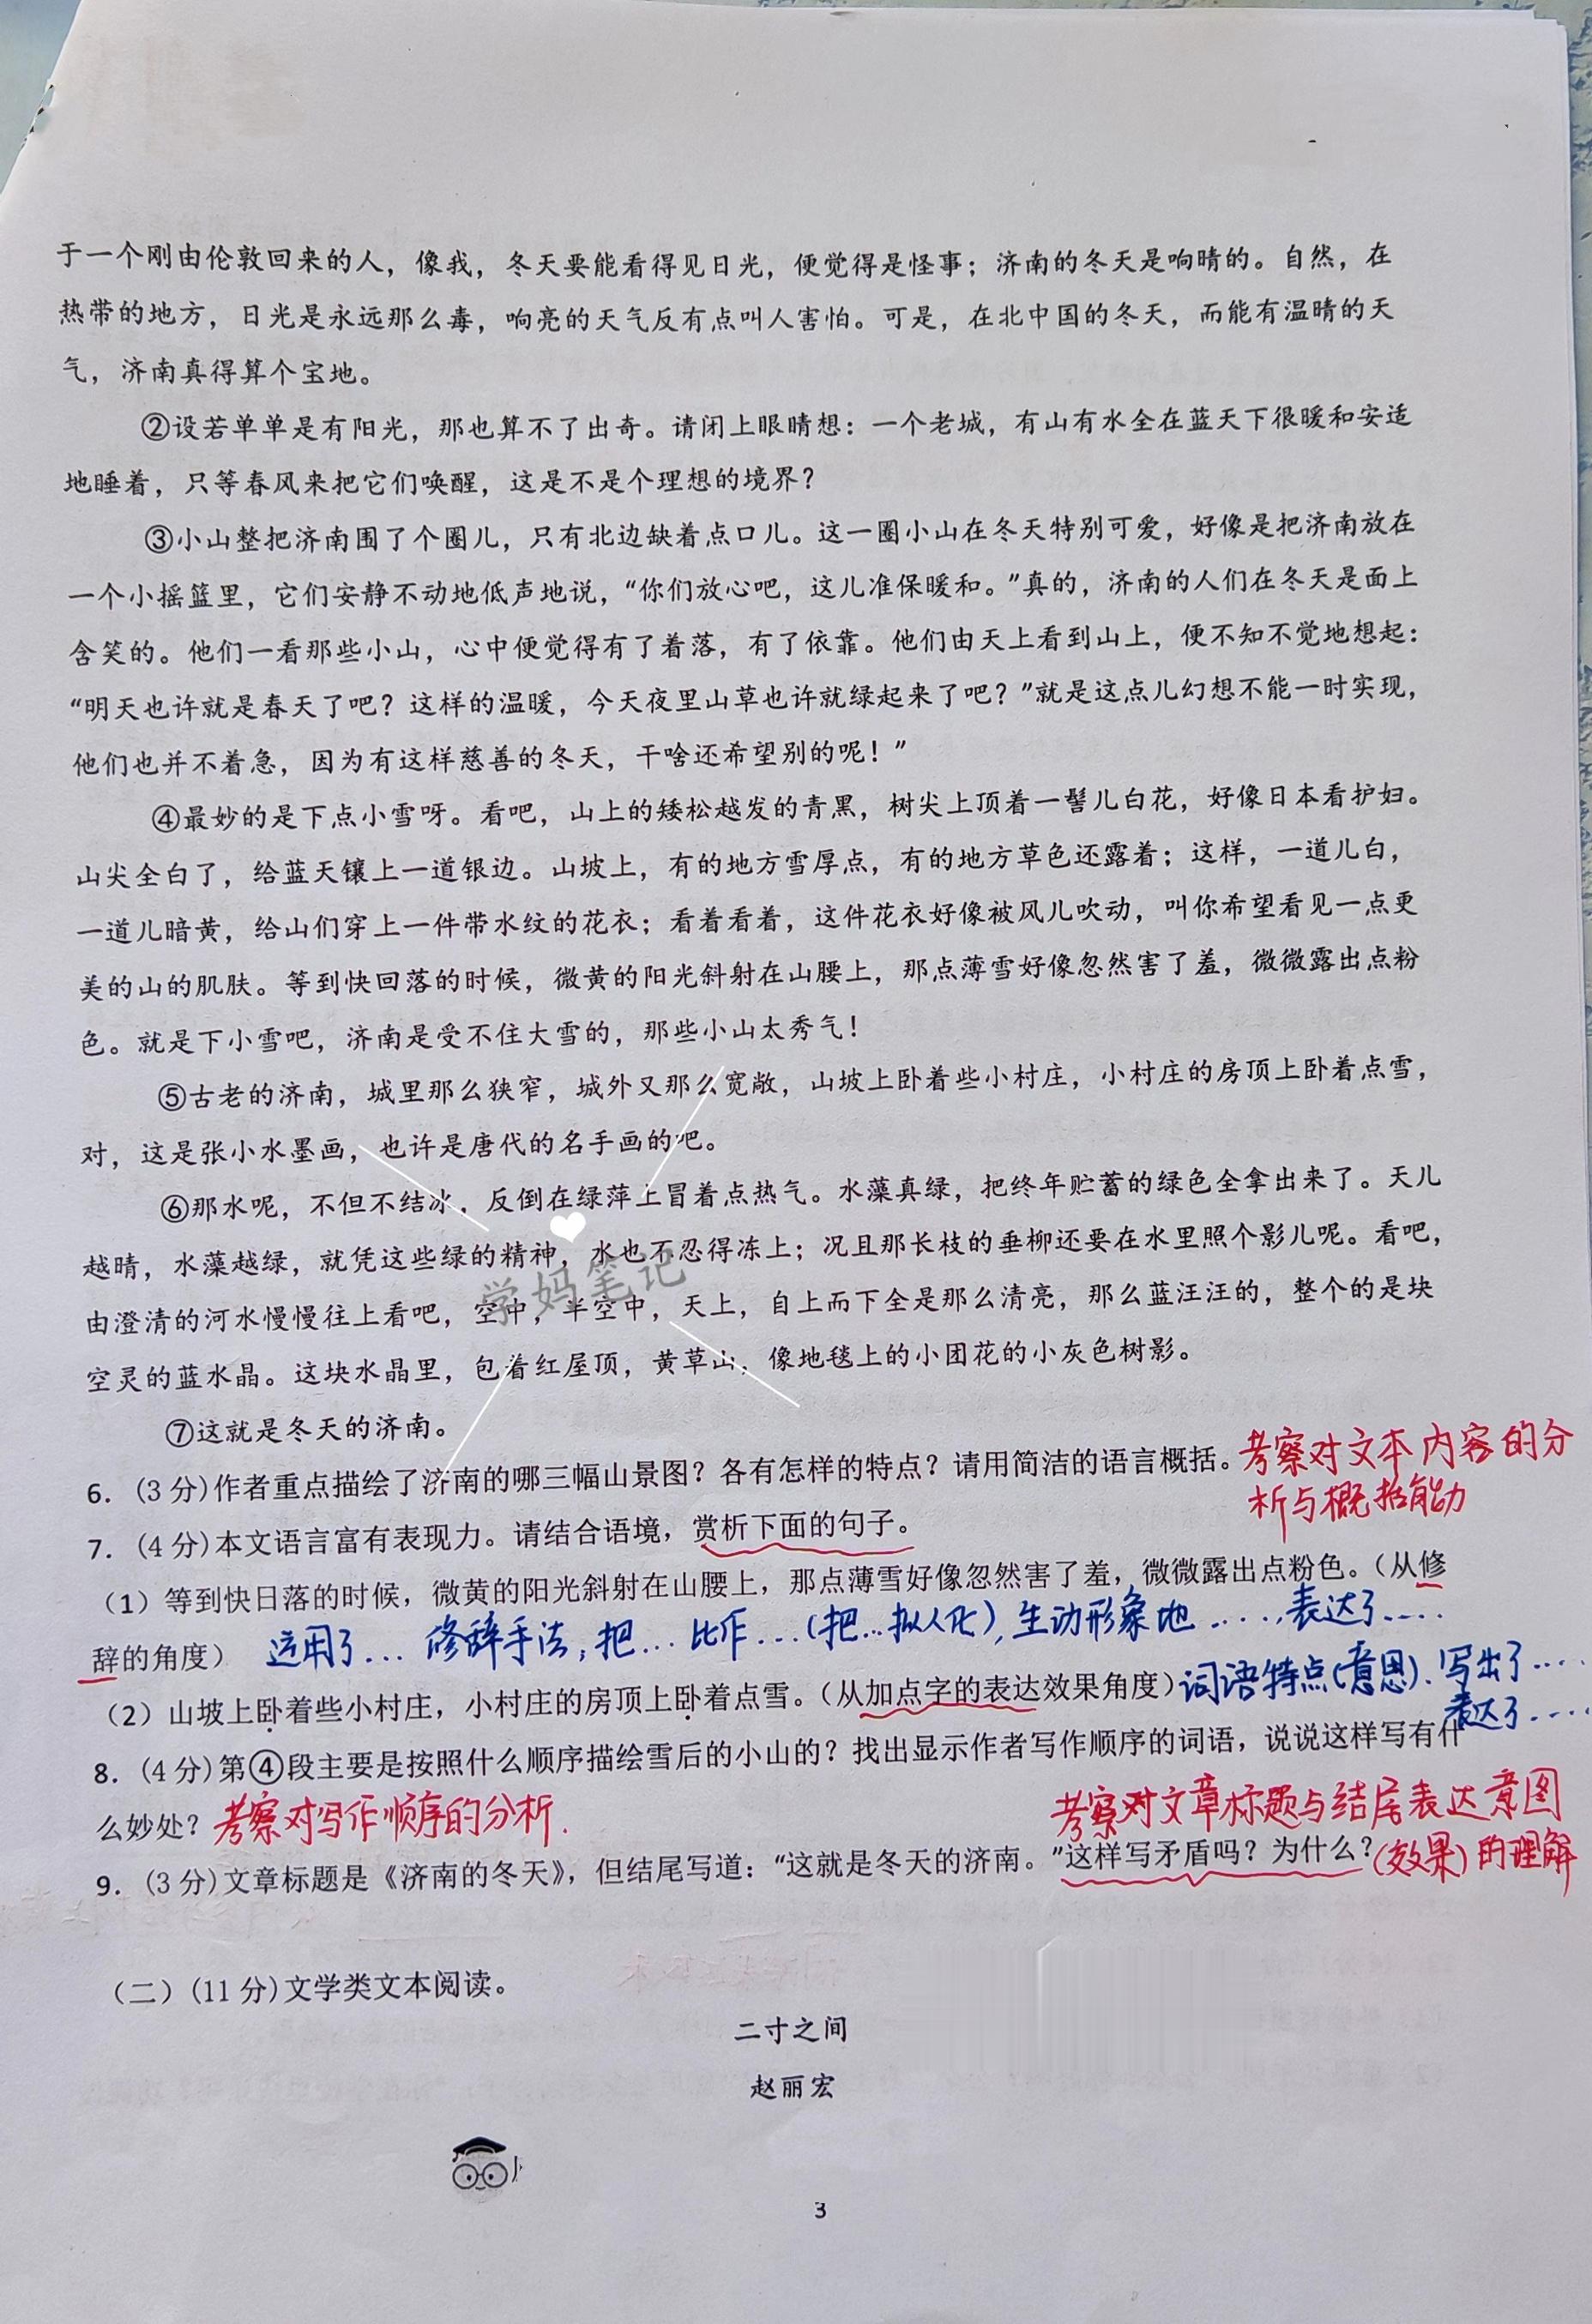 于一个刚由伦敦回来的人，像我，冬天要能看得见日光，便觉得是怪事；济南的冬天是响晴的。自然，在
热带的地方，日光是永远那么毒，响亮的天气反有点叫人害怕。可是，在北中国的冬天，而能有温晴的天
气，济南真得算个宝地。
②设若单单是有阳光，那也算不了出奇。请闭上眼睛想：一个老城，有山有水全在蓝天下很暖和安适
地睡着，只等春风来把它们唤醒，这是不是个理想的境界？
③小山整把济南围了个圈儿，只有北边缺着点口儿。这一圈小山在冬天特别可爱，好像是把济南放在
一个小摇篮里，它们安静不动地低声地说，“你们放心吧，这儿准保暖和。”真的，济南的人们在冬天是面上
含笑的。他们一看那些小山，心中便觉得有了着落，有了依靠。他们由天上看到山上，便不知不觉地想起：
“明天也许就是春天了吧？这样的温暖，今天夜里山草也许就绿起来了吧？”就是这点儿幻想不能一时实现，
他们也并不着急，因为有这样慈善的冬天，干啥还希望别的呢！”
④最妙的是下点小雪呀。看吧，山上的矮松越发的青黑，树尖上顶着一髻儿白花，好像日本看护妇。
山尖全白了，给蓝天镶上一道银边。山坡上，有的地方雪厚点，有的地方草色还露着；这样，一道儿白，
一道儿暗黄，给山们穿上一件带水纹的花衣；看着看着，这件花衣好像被风儿吹动，叫你希望看见一点更
美的山的肌肤。等到快回落的时候，微黄的阳光斜射在山腰上，那点薄雪好像忽然害了羞，微微露出点粉
色。就是下小雪吧，济南是受不住大雪的，那些小山太秀气！
⑤古老的济南，城里那么狭窄，城外又那么宽敞，山坡上卧着些小村庄，小村庄的房顶上卧着点雪，
对，这是张小水墨画，也许是唐代的名手画的吧。
⑥那水呢，不但不结冰，反倒在绿萍上冒着点热气。水藻真绿，把终年贮蓄的绿色全拿出来了。天儿
越晴，水藻越绿，就凭这些绿的精神，水也不忍得冻上；况且那长枝的垂柳还要在水里照个影儿呢。看吧，
由澄清的河水慢慢往上看吧，空中，半空中，天上，自上而下全是那么清亮，那么蓝汪汪的，整个的是块
学妈笔记
空灵的蓝水晶。这块水晶里，包着红屋顶，黄草山，像地毯上的小团花的小灰色树影。
⑦这就是冬天的济南。
6.（3分）作者重点描绘了济南的哪三幅山景图？各有怎样的特点？请用简洁的语言概括。考察对文本内容的分
析与概括能力
7.（4分）本文语言富有表现力。请结合语境，赏析下面的句子。
（1）等到快日落的时候，微黄的阳光斜射在山腰上，那点薄雪好像忽然害了羞，微微露出点粉色。（从修
辞的角度） 运用了… 修辞手法，把… 比作…（把…拟人化），生动形象地……，表达了……
（2）山坡上卧着些小村庄，小村庄的房顶上卧着点雪。（从加点字的表达效果角度）词语特点（意思）．写出了……
表达了……
8.（4分）第④段主要是按照什么顺序描绘雪后的小山的？找出显示作者写作顺序的词语，说说这样写有什
么妙处？考察对写作顺序的分析．
考察对文章标题与结尾表达意图
9.（3分）文章标题是《济南的冬天》，但结尾写道：“这就是冬天的济南。”这样写矛盾吗？为什么？（效果）的理解
（二）（11分）文学类文本阅读。
二寸之间
赵丽宏
3